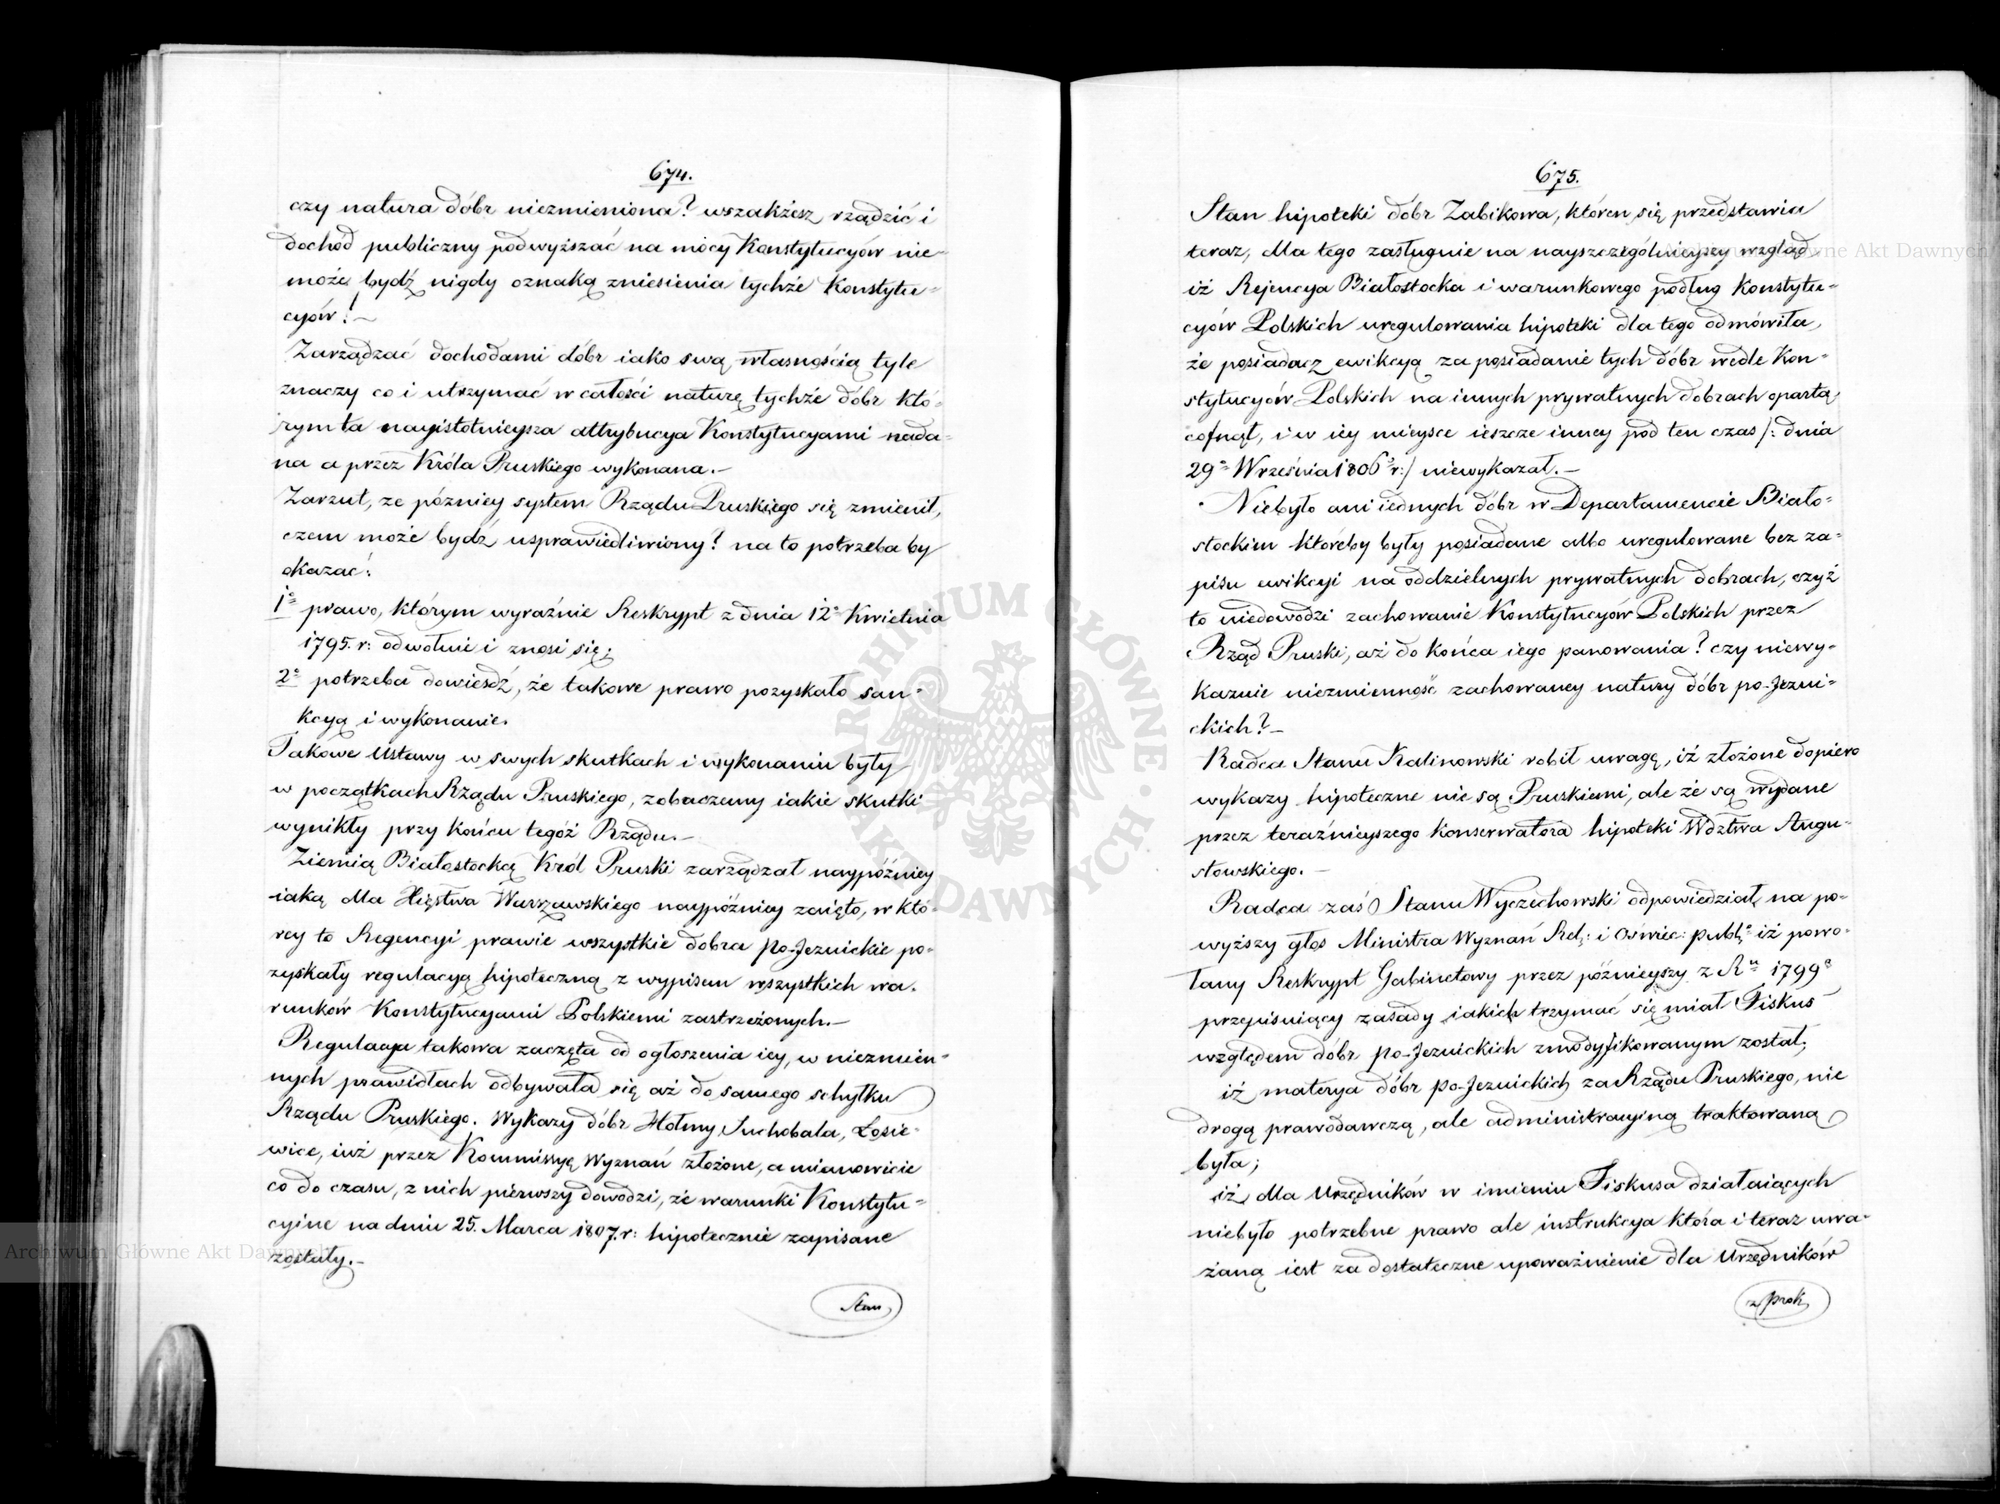 674.
czy natura dóbr niezmieniona? wszakżesz rządzić i
dochód publiczny podwyższać na mocy Konstytucyów nie=
może bydź nigdy oznaką zniesienia tychże Konstytu=
cyów!—
Zarządzać dochodami dóbr iako swą własnością tyle
znaczy co i utrzymać w całości naturę tychże dóbr któ=
rym ta nayistotnieysza attrybucya Konstytucyami nada=
na a przez Króla Pruskiego wykonana.—
Zarzut, że późniey system Rządu Pruskiego się zmienił,
czem może bydź usprawiedliwiony? na to potrzeba by
okazać:
1° prawo, którym wyraźnie Reskrypt z dnia 12° Kwietnia
1795. r: odwołuie i znosi się;
2° potrzeba dowieśdź, że takowe prawo pozyskało san=
kcyą i wykonanie.
Takowe Ustawy w swych skutkach i wykonaniu były
w początkach Rządu Pruskiego, zobaczemy iakie skutki
wynikły przy końcu tegóż Rządu.—
Ziemią Białostocką Król Pruski zarządzał naypóźniey
iaką dla Xięstwa Warszawskiego naypóźniey zaięto, w któ=
rey to Regencyi prawie wszystkie dobra po-Jezuickie po=
zyskały regulacyą hipoteczną z wypisem wszystkich wa=
runków Konstytucyami Polskiemi zastrzeżonych.—
Regulacya takowa zaczęta od ogłoszenia iey, w niezmien=
nych prawidłach odbywała się aż do samego schyłku
Rządu Pruskiego. Wykazy dóbr Hołmy, Suchobala, Łosie=
wice, iuż przez Kommissyę Wyznań złożone, a mianowicie
co do czasu, z nich pierwszy dowodzi, że warunki Konstytu=
cyine na dniu 25. Marca 1807. r: hipotecznie zapisane
zostały.—
Stan
675.
Stan hipoteki dóbr Zabikowa, któren się przedstawia
teraz, dla tego zasługuie na nayszczególnieyszy wzgląd
iż Rejencya Białostocka i warunkowego podług Konstytu=
cyów Polskich uregulowania hipoteki dla tego odmówiła,
że posiadacz ewikcyą za posiadanie tych dóbr wedle Kon=
stytucyów Polskich na innych prywatnych dobrach opartą
cofnął, i w iey mieysce ieszcze inney pod ten czas /: dnia
29° Września 1806 r:/ niewykazał.—
Niebyło ani iednych dóbr w Departamencie Biało=
stockim któreby były posiadane albo uregulowane bez za=
pisu ewikcyi na oddzielnych prywatnych dobrach, czyż
to niedowodzi zachowanie Konstytucyów Polskich przez
Rząd Pruski, aż do końca iego panowania? czy niewy=
kazuie niezmienność zachowaney natury dóbr po-Jezui=
ckich?—
Radca Stanu Kalinowski robił uwagę, iż złożone dopiero
wykazy hipoteczne nie są Pruskiemi, ale że są wydane
przez teraźnieyszego Konserwatora hipoteki Wdztwa Augu=
stowskiego.—
Radca zaś Stanu Wyczechowski odpowiedział, na po=
wyższy głos Ministra Wyznań Rel: i Oświec: publ: iż powo=
łany Reskrypt Gabinetowy przez późnieyszy z Ru 1799°
przepisuiący zasady iakich trzymać się miał Fiskus
względem dóbr po-Jezuickich zmodyfikowanym został;
iż materya dóbr po-Jezuickich za Rządu Pruskiego, nie
drogą prawodawczą, ale administracyiną traktowaną
była;
iż dla Urzędników w imieniu Fiskusa działaiących
niebyło potrzebne prawo ale instrukcya która i teraz uwa=
żaną iest za dostateczne upoważnienie dla Urzędników
z Prok
ARCHIWUM GŁÓWNE AKT DAWNYCH
Archiwum Główne Akt Dawnych
Archiwum Główne Akt Dawnych